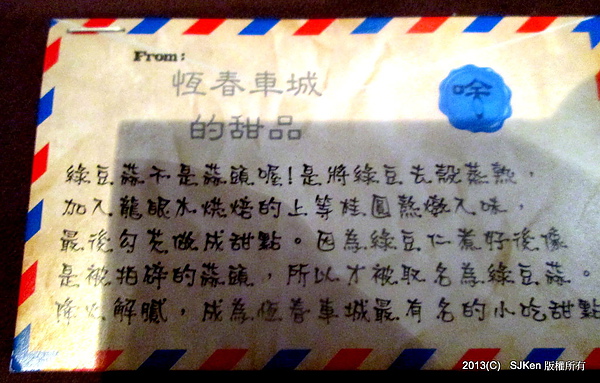 From:
恆春車城
的甜品
綠豆蒜不是蒜頭喔!是將綠豆去殼蒸熟,
加入龍眼水烘焙的上等桂圓熬燉入味,
最後勾芡做成甜點。因為綠豆仁煮好後像
是被拍碎的蒜頭,所以才被取名為綠豆蒜。
降火解膩,成為恆春車城最有名的小吃甜點
2013(C) SJKen 版權所有